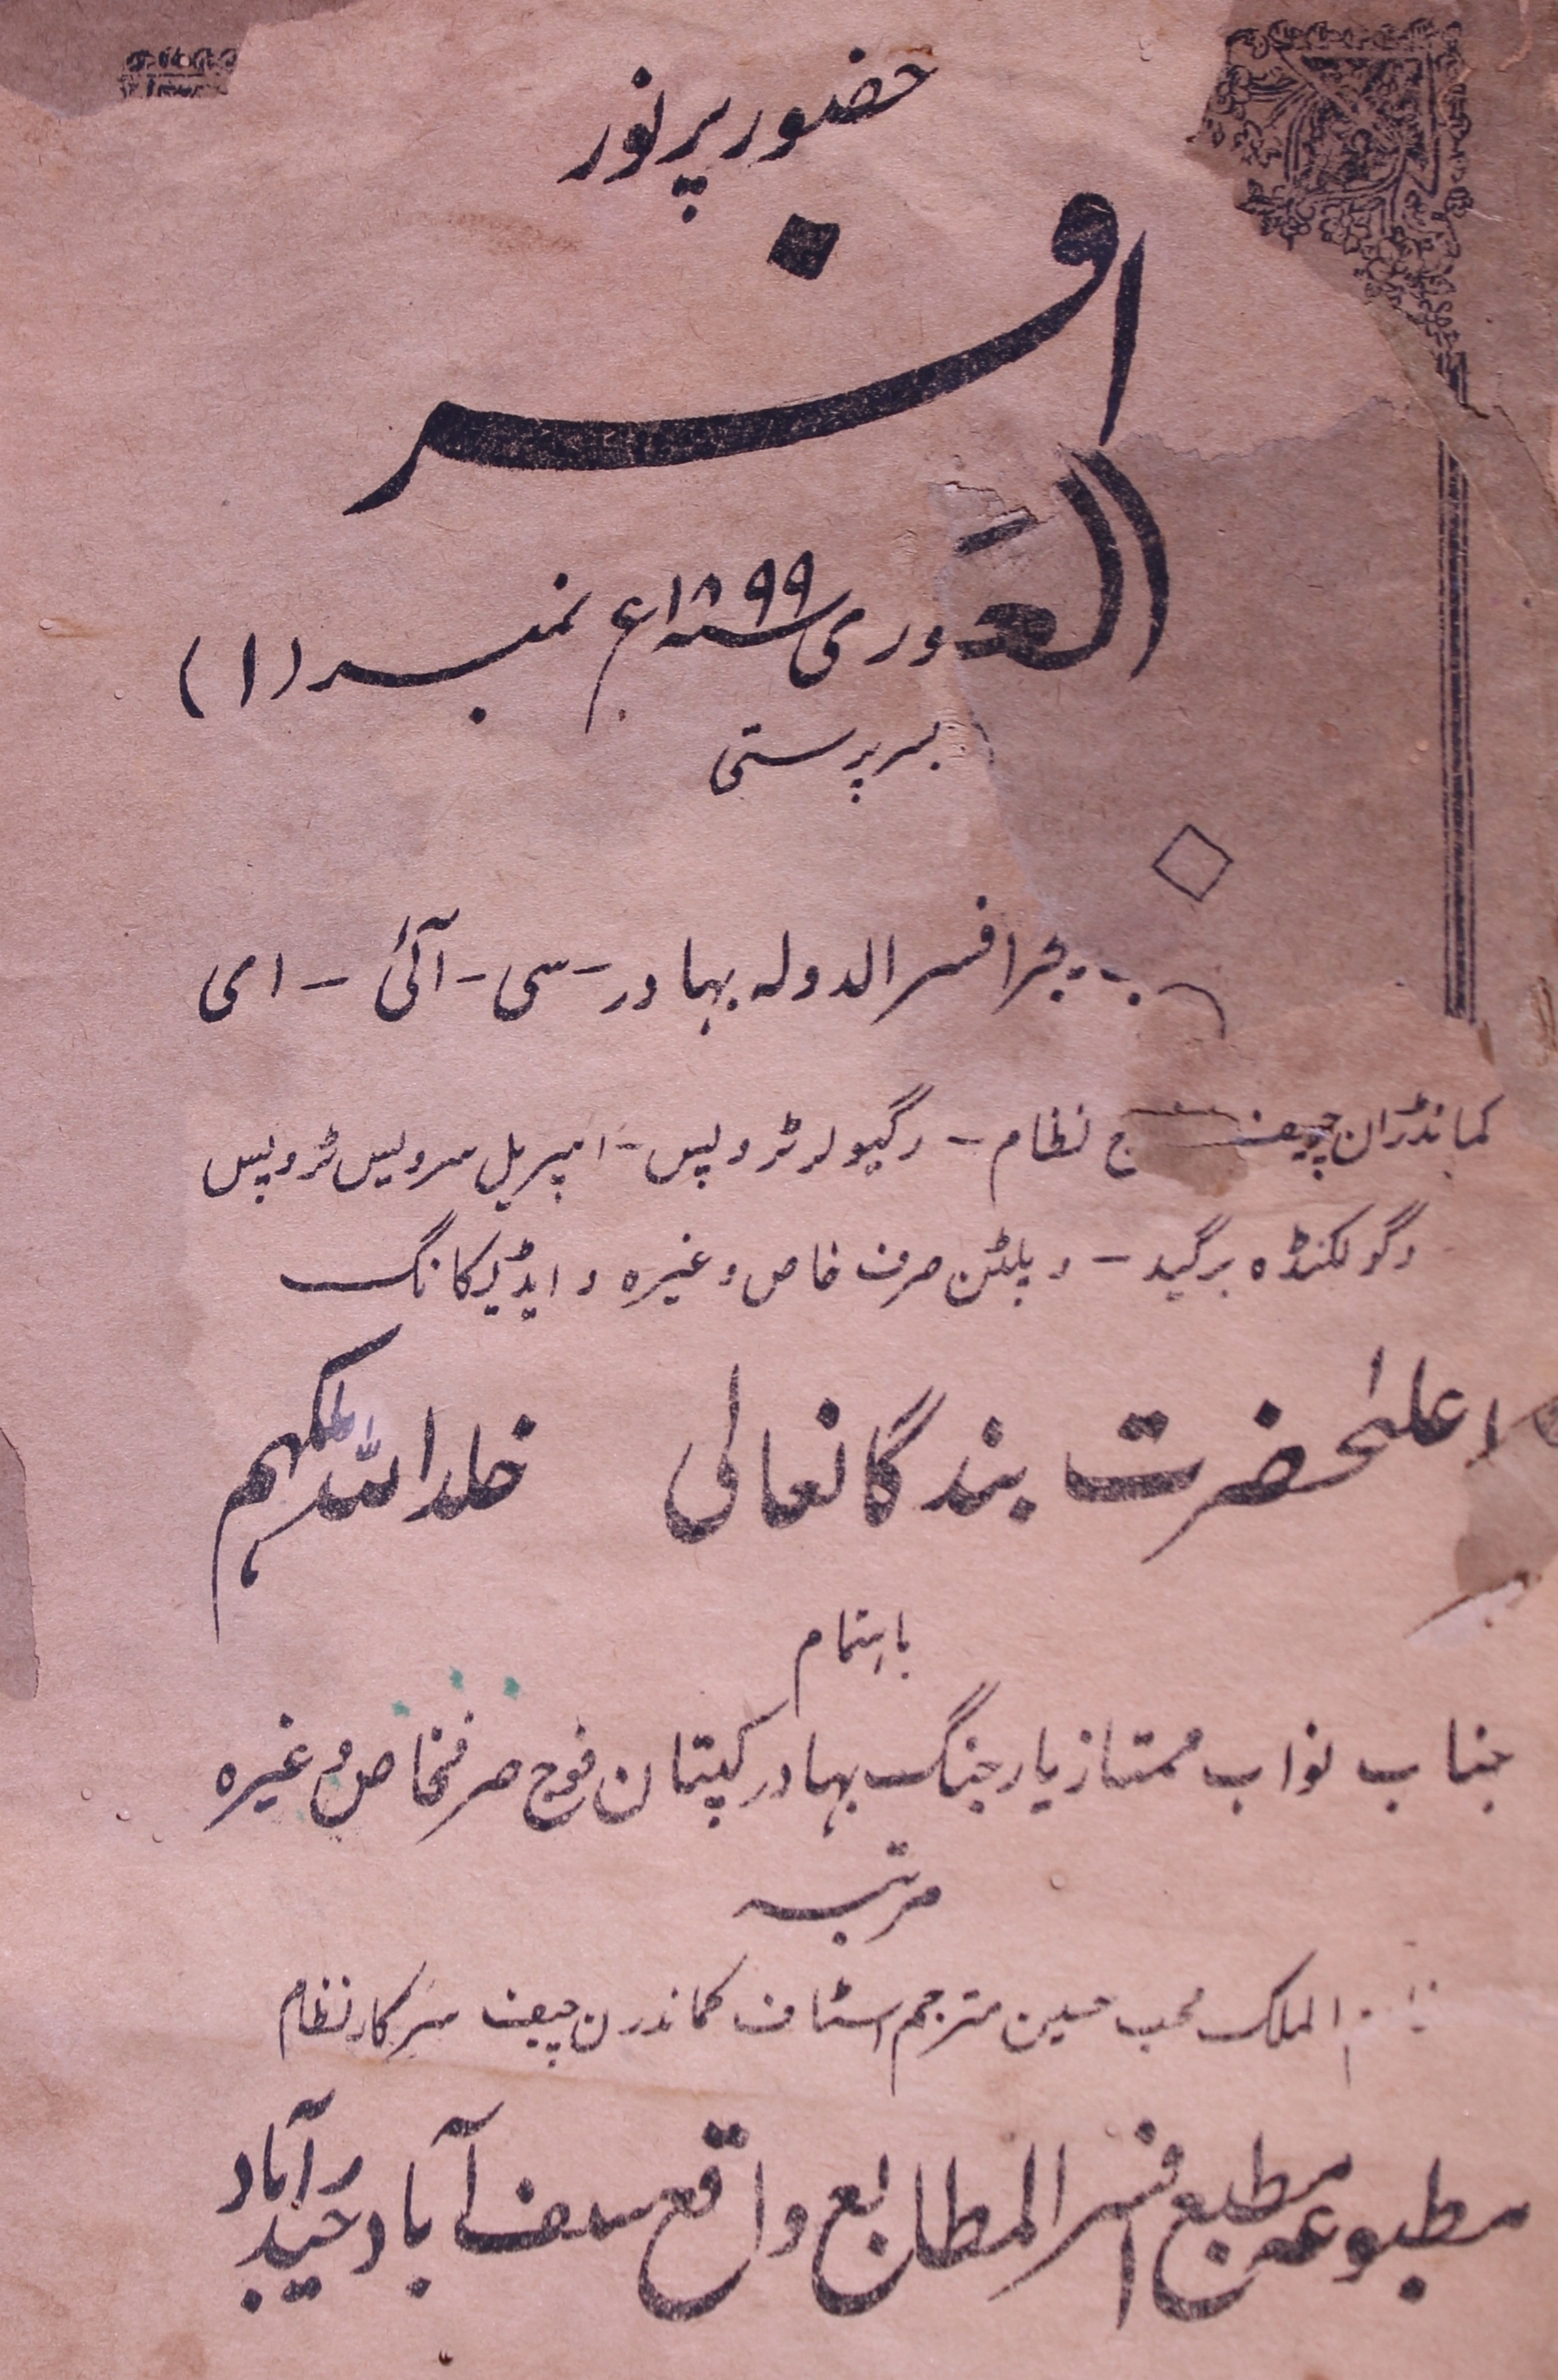 حضور پرنور
افسر
العـ
وری سنہ ۱۸۹۹ع نمبر (۱)
بسرپرستی
یجر افسر الدولہ بہادر - سی - آئی - ای
کمانڈران چیف ج نظام - رگیولر ٹروپس - امپریل سرویس ٹروپس
وگولکنڈہ برگیڈ - و پلٹن صرف خاص وغیرہ و ایڈیکانگ
اعلیٰحضرت بندگانعالی خلد اللہ ملکہم
باہتمام
جناب نواب ممتاز یار جنگ بہادر کپتان فوج صرفخاص وغیرہ
مرتبہ
الملک محب حسین مترجم اسٹاف کمانڈرن چیف سرکار نظام
مطبوعہ مطبع افسر المطابع واقع سیف آباد حیدرآباد